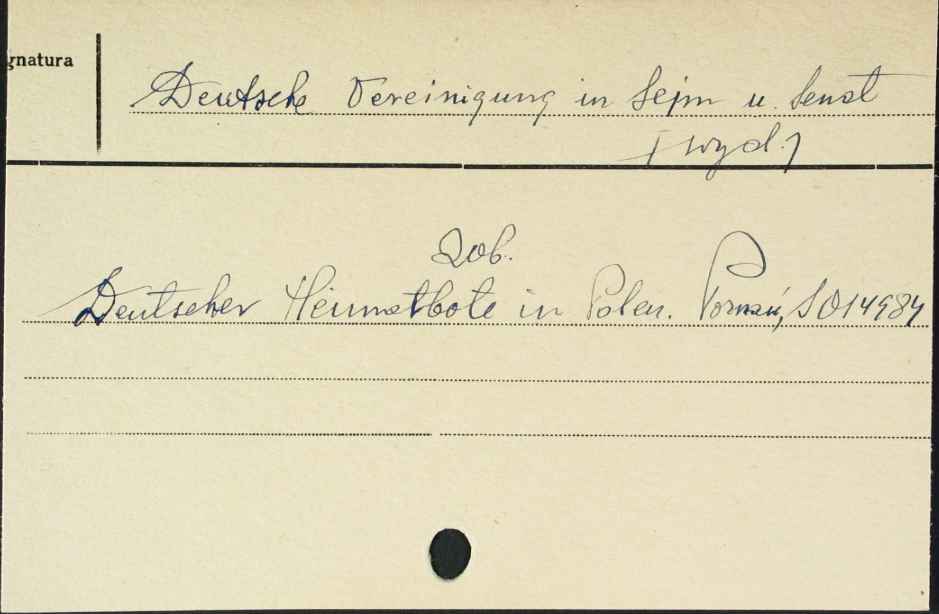 gnatura
Deutsche Vereinigung in Sejm u. Senat
(wyd.)
Zob.
Deutscher Heimatbote in Polen. Poznań, SO14984